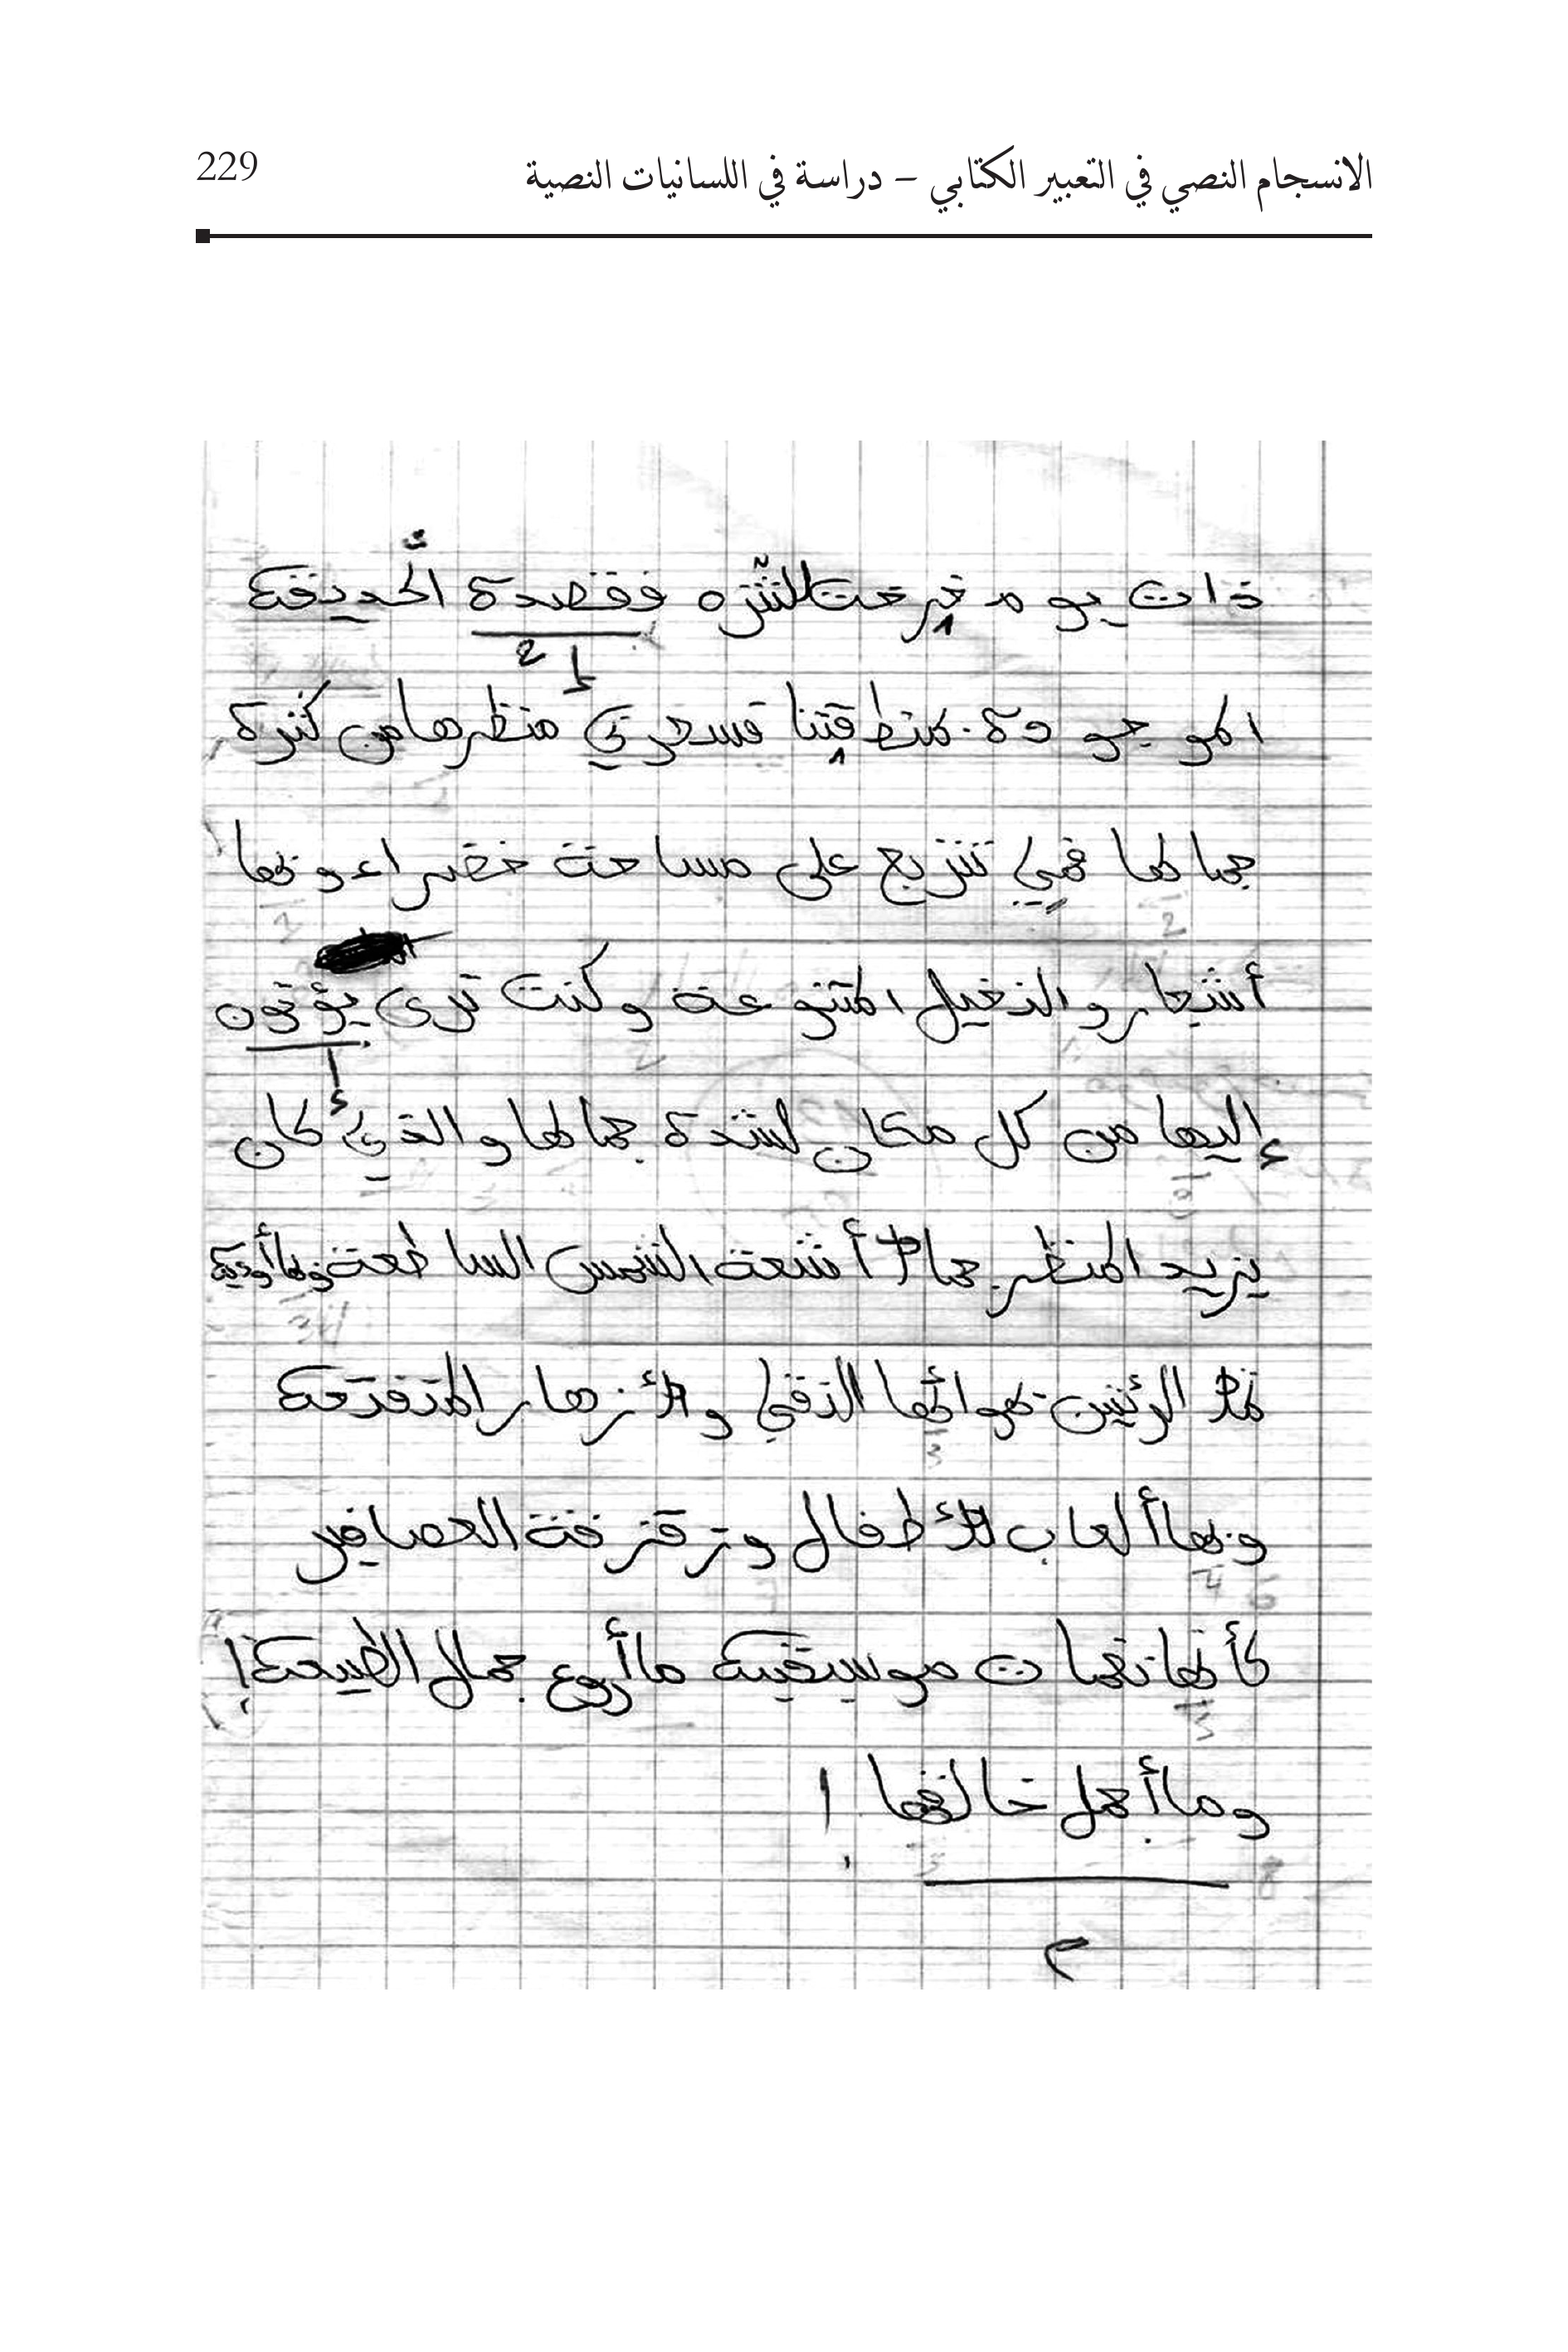 الانسجام النصي في التعبير الكتابي – دراسة في اللسانيات النصية 229
ذات يوم خرجت للتنزه فقصدة الحديقة
الموجودة بمنطقتنا فسحرني منظرها من كثرة
جمالها فهي تتربع على مساحة خضراء وبها
أشجار والنخيل المتنوعة وكنت ترى يؤتون
إليها من كل مكان لشدة جمالها والذي كان
يزيد المنظر جمالا أشعة الشمس الساطعة
تملأ الرئتين بهوائها النقي والأزهار المتفتحة
وبها ألعاب للأطفال وزقزقة العصافير
كأنها نغمات موسيقية ما أروع جمال الطبيعة!
وما أجمل خالقها!